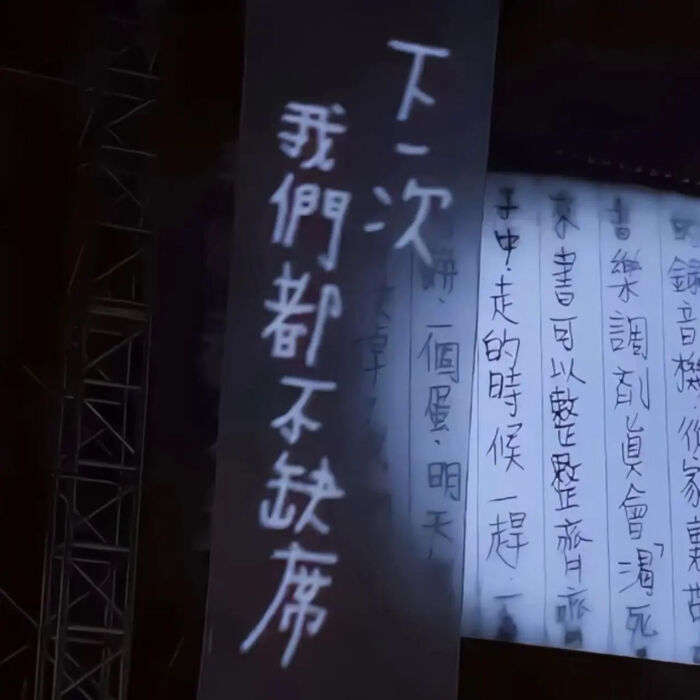 下一次
我們都不缺席
錄音機從家裏
音樂調劑真會渴死
來書可以整整齊齊
子中.走的時候一趕.
餅.一個蛋.明天